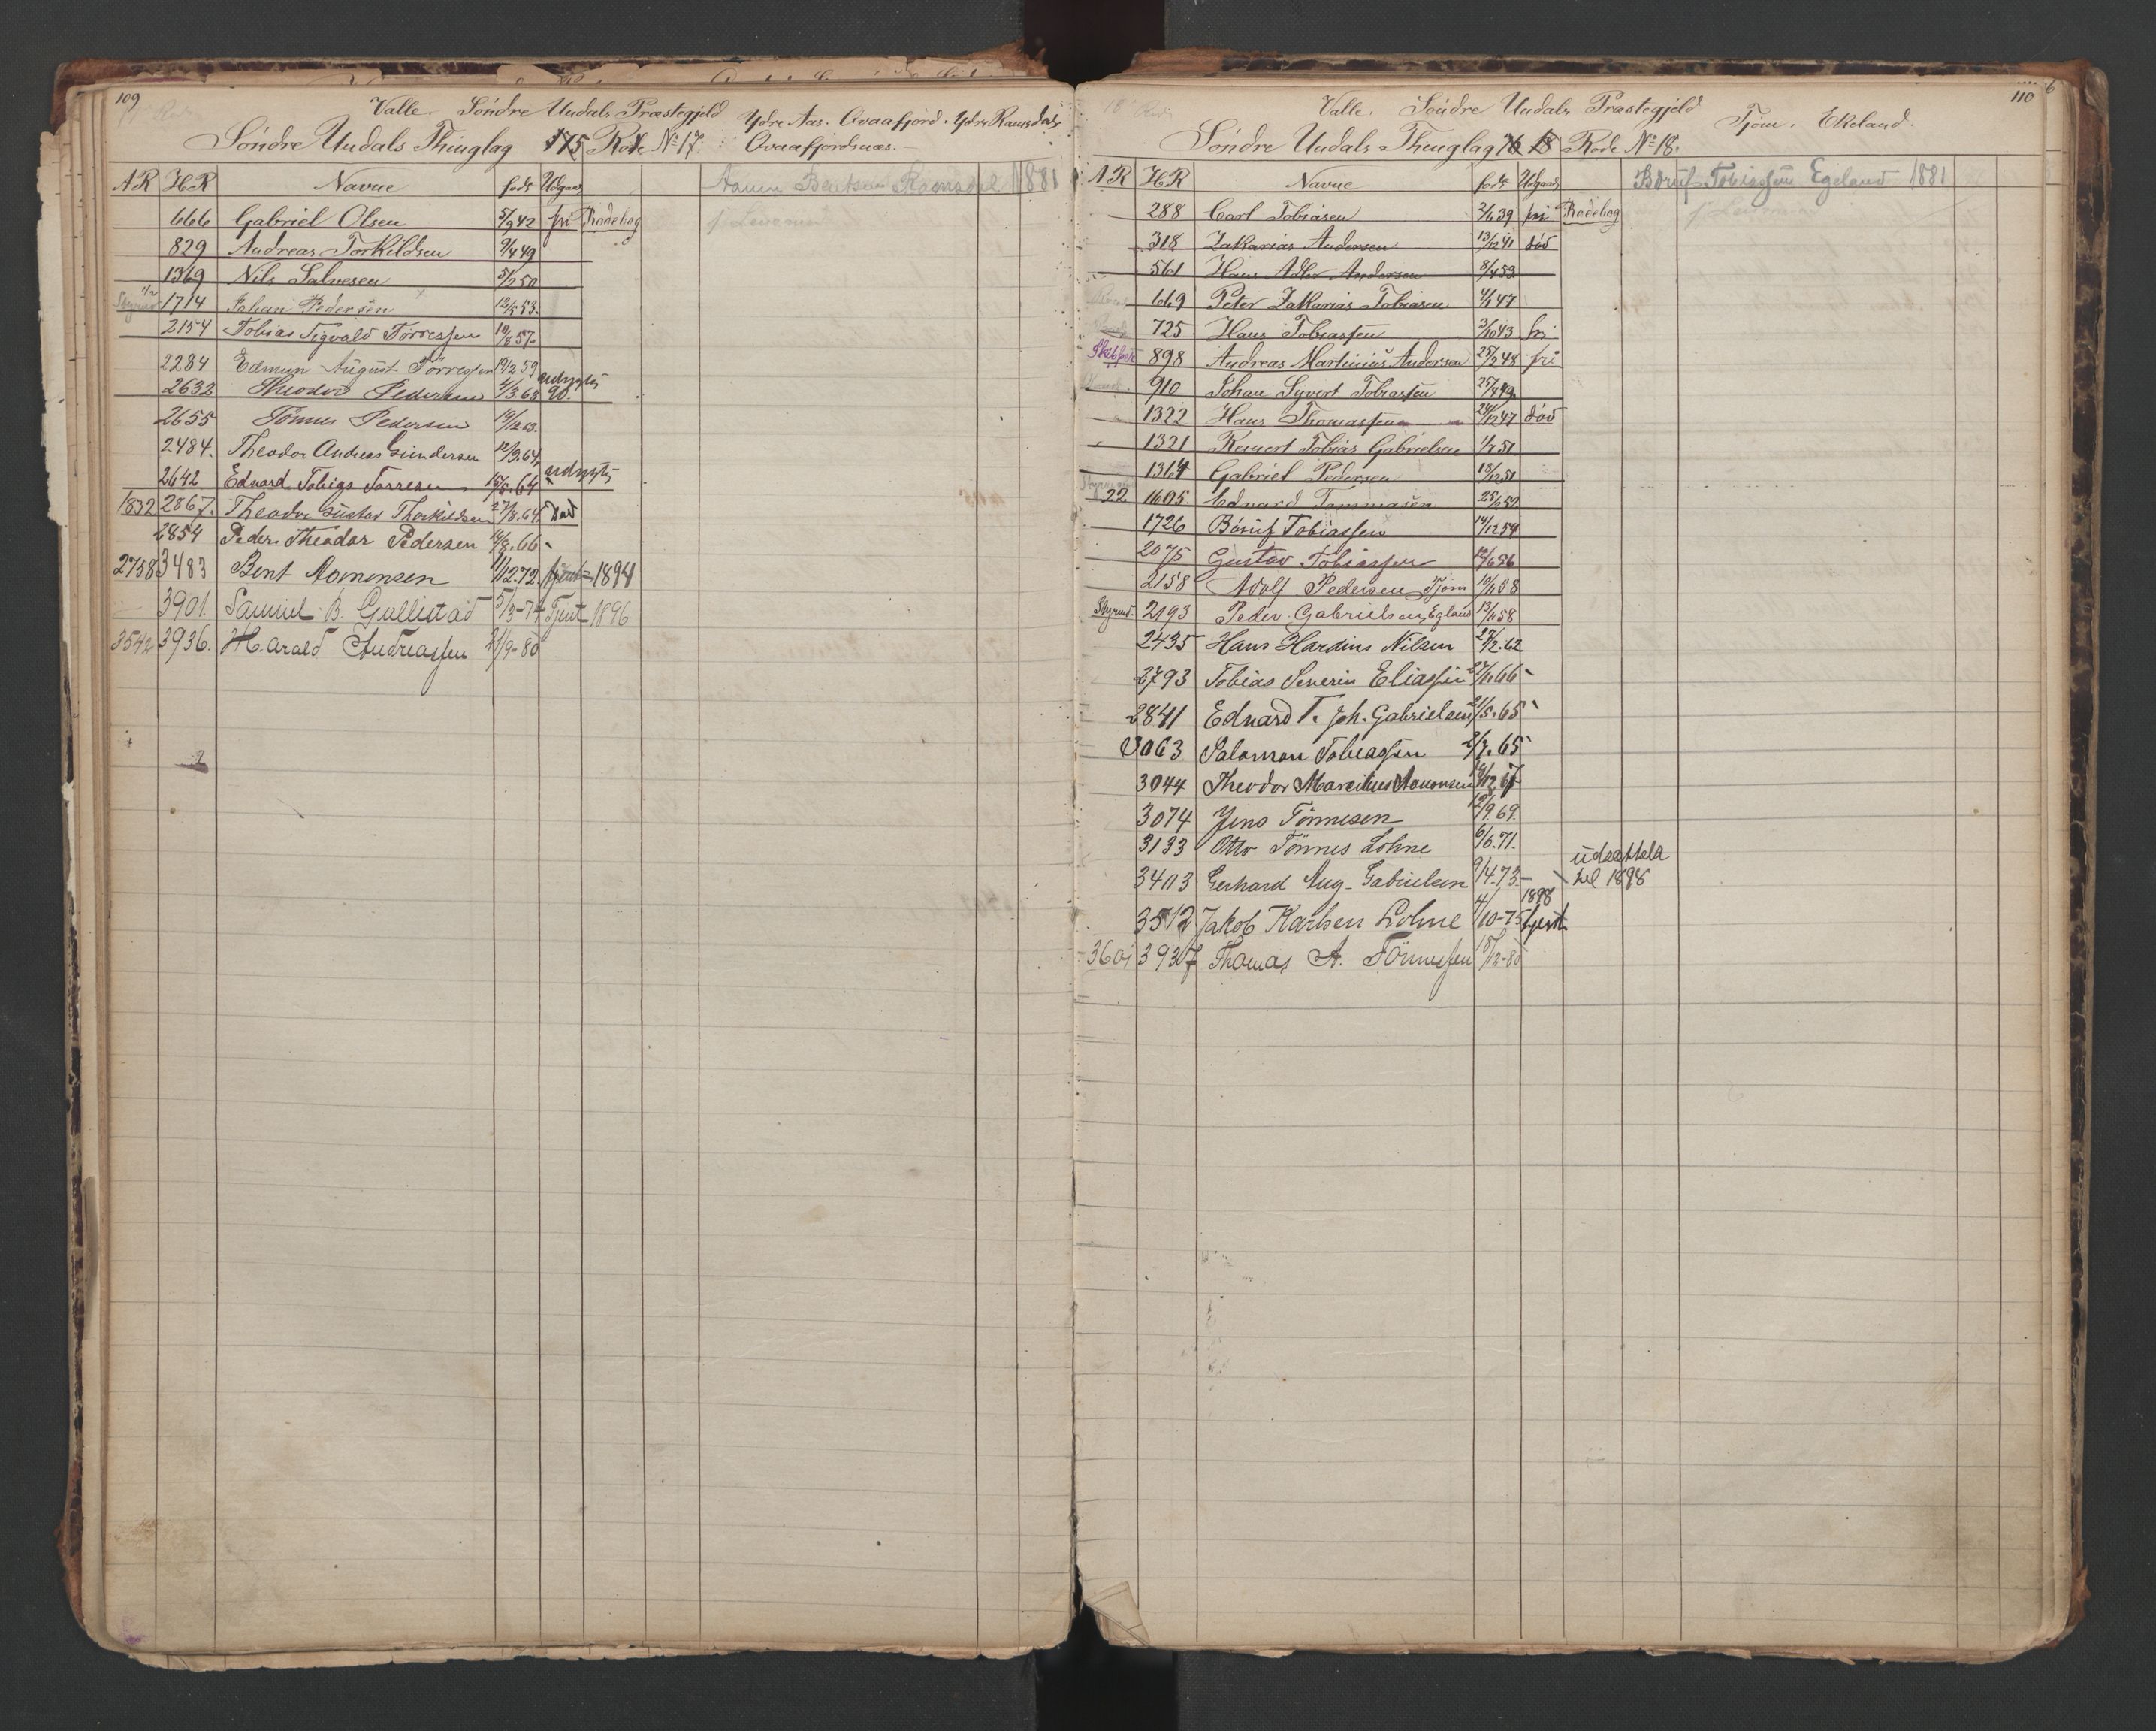 109
Valle. Söndre Undals Præstegjeld Ydre Aas. Ovaafjord. Ydre Ramsdals
Söndre Undals Thinglag 175 Rode No 17. Ovaafjordsnæs.
AR HR Navne föds Udgaar Bentsen Ramsdal 1881
666 Gabriel Olsen 5/9 42 fri Rodebog
829 Andreas Torkildsen 9/4 49
1369 Nils Salvesen 50
1714 Johan Pedersen 53
2154 Tobias Sigvald Torressen 10/8 57
2284 Edmun August Torressen 19/2 59
2632 Theodor Pedersen 1/3.63 udvist 90.
2655 Tönnes Pedersen 63
2484. Theodor Andreas Gundersen 12/9.64.
2642 Eduard Tobias Torresen 64 udvist
1832 2867. Theodor Gustav Thorkildsen 27/8.64. Död
2854 Peder Theodor Pedersen 14/8.66
2758 3483 Bent Aamensen 11/12.72. tjent 1894
3901. Samuel B. Gullestad 5/3-74 Tjent 1896
3542 3936. Harald Andreassen 21/9-80
110
Valle. Söndre Undals Præstegjeld Tjöm. Ekeland.
Söndre Undals Thinglag 18 Rode No 18.
AR HR Navne föds Udgaar Börüf Tobiassen Egeland 1881
288 Carl Tobiasen 2/1 39 fri Rodebog
318 Zakarias Andersen 13/12 41 död
561 Hans Adler Andersen 8/4 53
669 Peter Zakarias Tobiasen 4/1 47
725 Hans Tobiassen 3/10 43 fri
Skibsfører 898 Andreas Martinius Andersen 25/2 48 fri
910 Johan Syvert Tobiassen 25/4 49
1322 Hans Thomassen 24/12 47 död
1321 Reinert Tobias Gabrielsen 1/7 51
1364 Gabriel Pedersen 51
22 1605. Edvard Tommasen 25/1 52
1726 Börüf Tobiassen 14/12 54
2075 Gustav Tobiassen 12/6 56
2158 Adolf Pedersen Tjöm 10/1 58
Styrmd. 2193 Peder Gabrielsen, Egland 13/1 58
2435 Hans Hardius Nilsen 27/2.62
2793 Tobias Severin Eliassen 27/1.66
2841 Eduard T. Joh. Gabrielsen 21/5.65
3063 Salomon Tobiassen 2/7.65
3044 Theodor Marcilius Aamonsen 19/12 67
3074 Jens Tönnesen 12/9 69.
3133 Otto Tönnes Lohne 6/6.71.
3403 Gerhard Aug. Gabrielsen 9/4.73. udsættela til 1898
3512 Jakob Karlsen Lohne 4/10-75 1898 tjent
3601 3937 Thomas A. Tönnessen 18/12-80